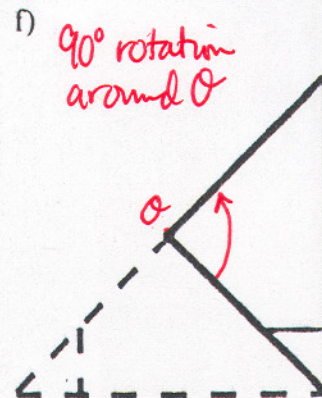 f)
90° rotation
around O
O